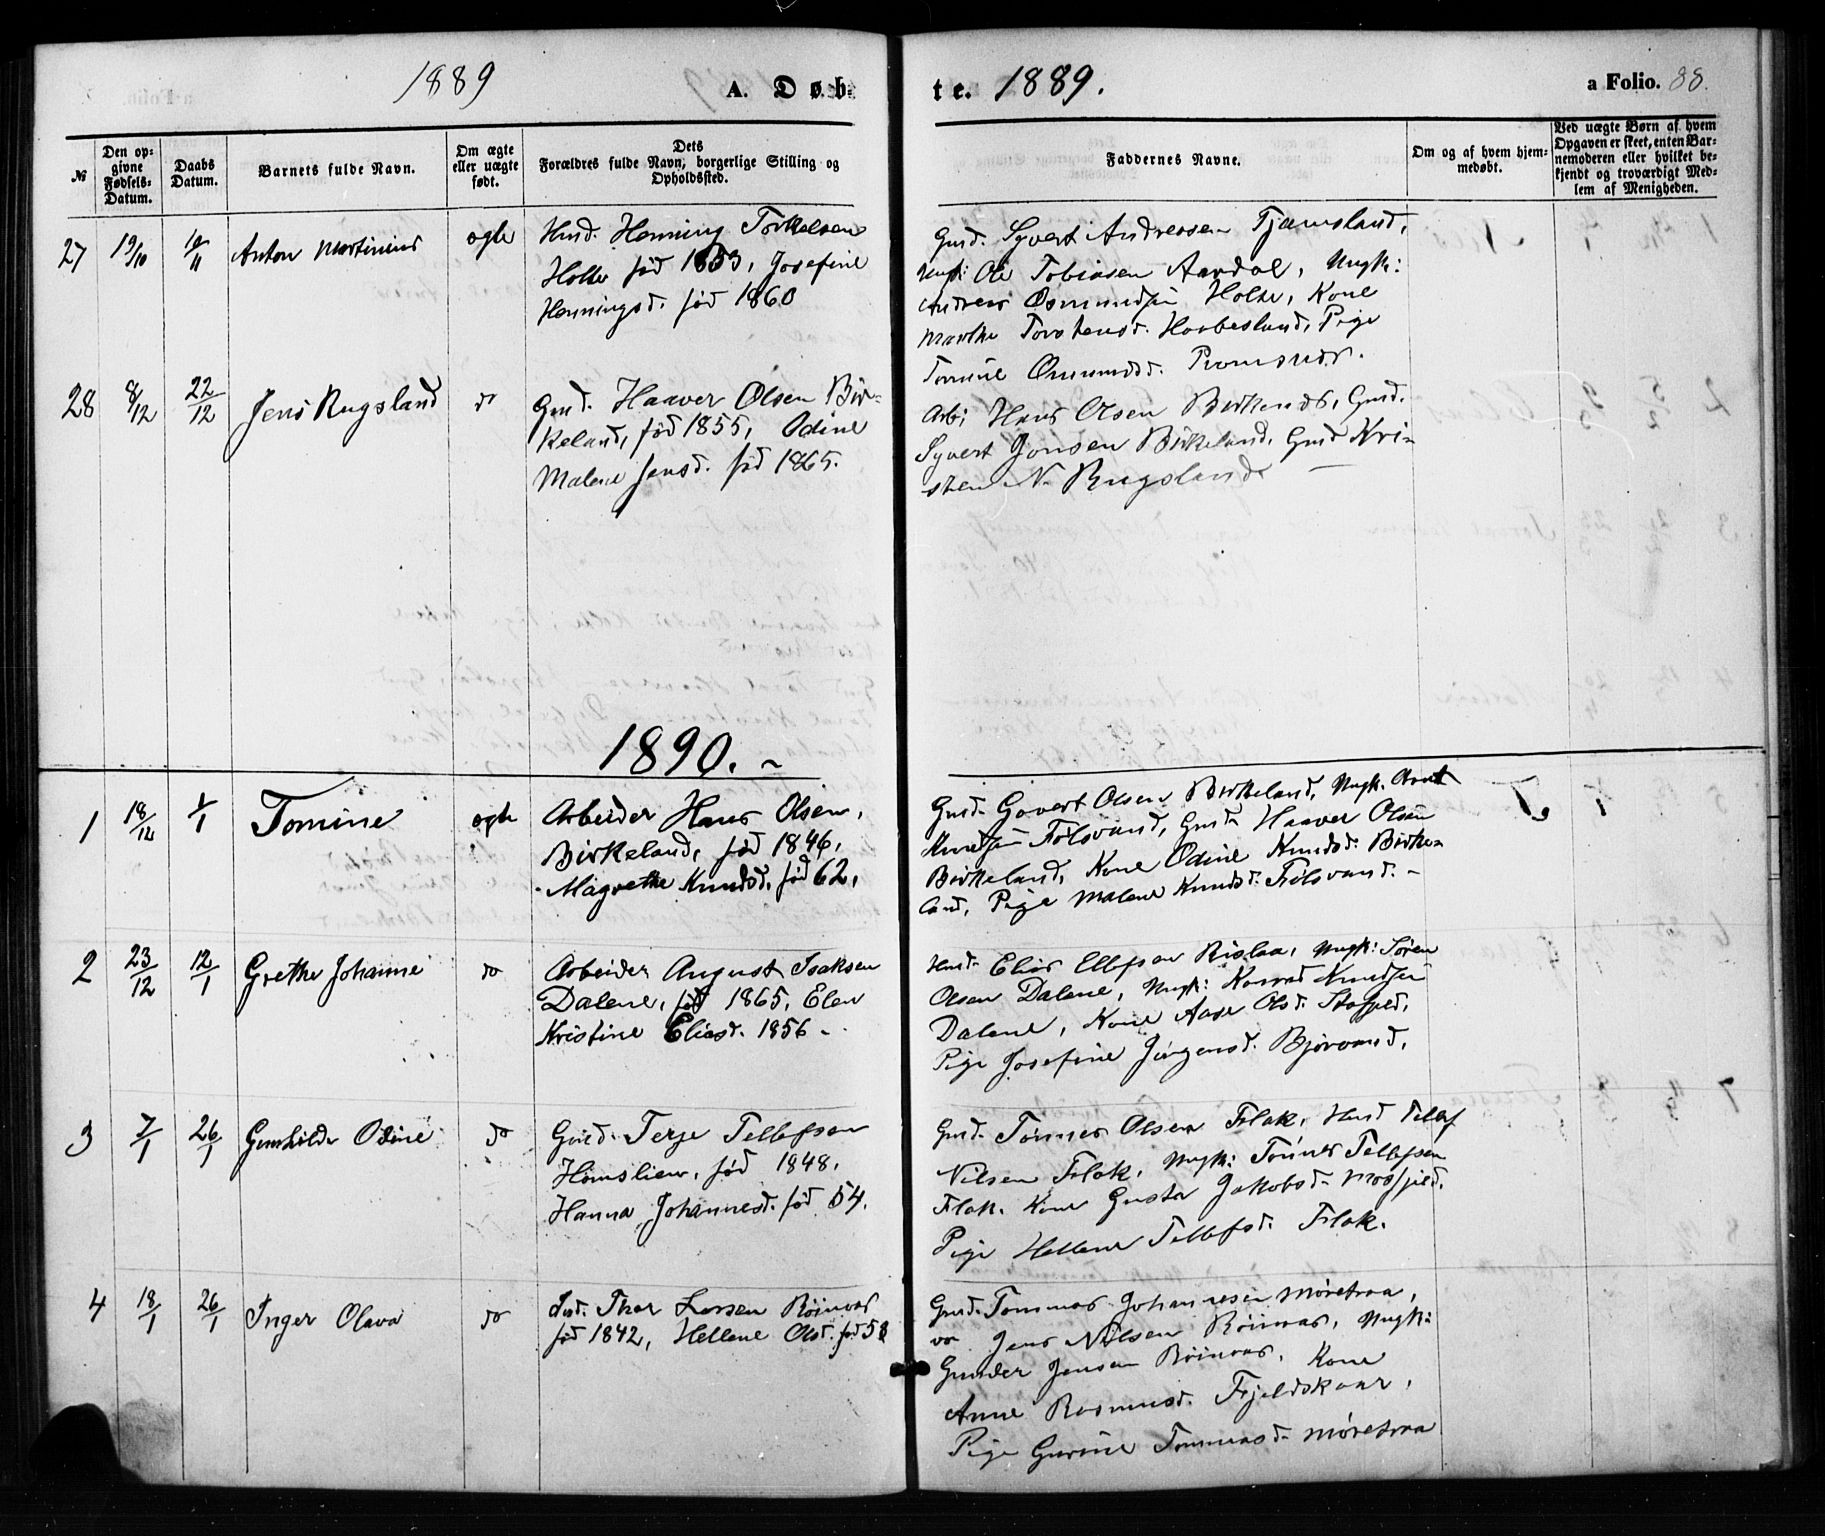 1889 A. Døb-
te. 1889. a Folio. 88.
№
Den op-
givne
Fødsels-
Datum.
Daabs
Datum.
Barnets fulde Navn.
Om ægte
eller uægte
født.
Dets
Forældres fulde Navn, borgerlige Stilling og
Opholdssted.
Faddernes Navne.
Om og af hvem hjem-
medøbt.
Ved uægte Børn af hvem
Opgaven er skeet, enten Bar-
nemoderen eller hvilket be-
kjendt og troværdigt Med-
lem af Menigheden.
27 19/10 10/11 Anton Martinius ægte
Husd. Henning Torkelsen
Holte fød 1853, Josefine
Henningsd. fød 1860
Gmd. Syvert Andressen Tjamsland,
Ungk: Ole Tobiasen Aardal, Ungk:
Andreas Osmundsen Holte, Kone
Marthe Torstensd. Haabesland, Pige
Tomine Omundsd.
28 8/12 22/12 Jens Rugsland do
Gmd. Haaver Olsen Bir-
keland, fød 1855, Odine
Malene Jensd. fød 1865.
Arb; Hans Olsen Birkenes, Gmd.
Syvert Jonsen Birkeland, Gmd Kri-
sten N. Rugsland
1890.
1 18/12 1/1 Tomine ægte
Arbeider Hans Olsen,
Birkeland, fød 1846,
Magrethe Knudsd. fød 62,
Gmd. Govert Olsen Birkeland, Ungk. Arnt
Knudsen Følsvand, Gmd Haaver Olsen
Birkeland, Kone Odine Knudsd. Birke-
land, Pige Malene Knudsd. Følsvand.
2 23/12 12/1 Grethe Johanne do
Arbeider August Isaksen
Dalene, fød 1865, Elen
Kristine Eliasd. 1856
Husd. Elias Ellefsen Rislaa, Ungk: Søren
Olsen Dalene, Ungk: Konrad Knudsen
Dalene, Kone Aase Olsd.
Pige Josefine Jørgensd. Bjorvand,
3 7/1 26/1 Gunhilde Odine do
Gmd. Terje Tellefsen
Hømslien, fød 1848,
Hanna Johannesd. fød 54.
Gmd. Tønnes Olsen Flak, Husd Tellef
Nilsen Flak, Ungk: Tønnes Tellefsen
Flak. Kone Gusta Jakobsd. Mosfjeld,
Pige Hellene Tellefsd. Flak.
4 18/1 26/1 Inger Olava do
Thor Larsen Røinaas
fød 1842, Hellene Olsd. fød 58
Gmd. Tommas Johannesen Møretraa,
Jens Nilsen Røinaas, Ungk:
Gunder Jensen Røinaas, Kone
Anne Rasmusd. Fjeldskaar,
Pige Gurine Tommasd. Møretraa